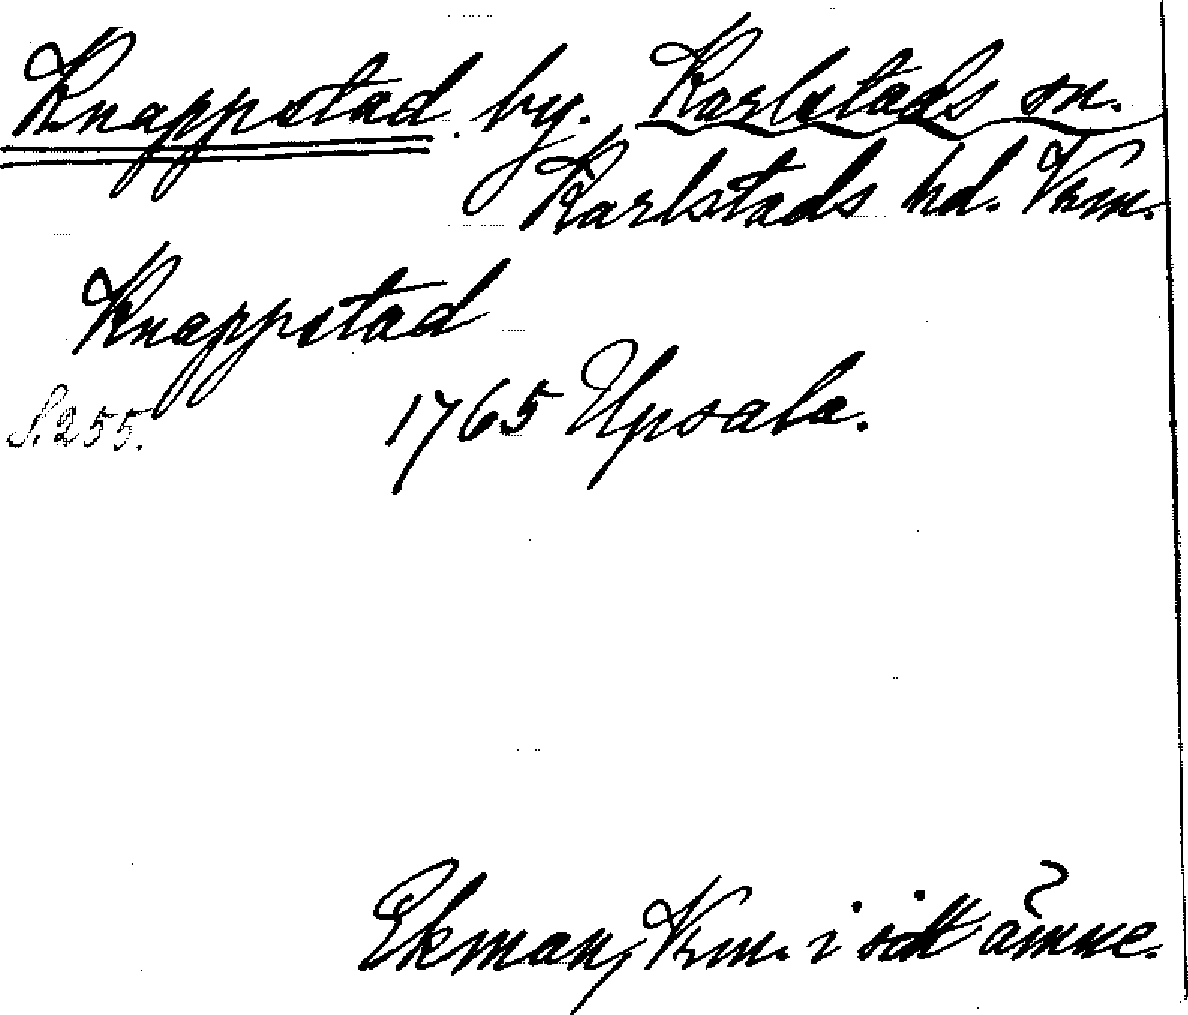 Knappstad. by. Karlstads sn.
Karlstads hd. Vrm.
Knappstad
S. 255. 1765 Upsala.
Ekman, Vrm. i sitt ämne.